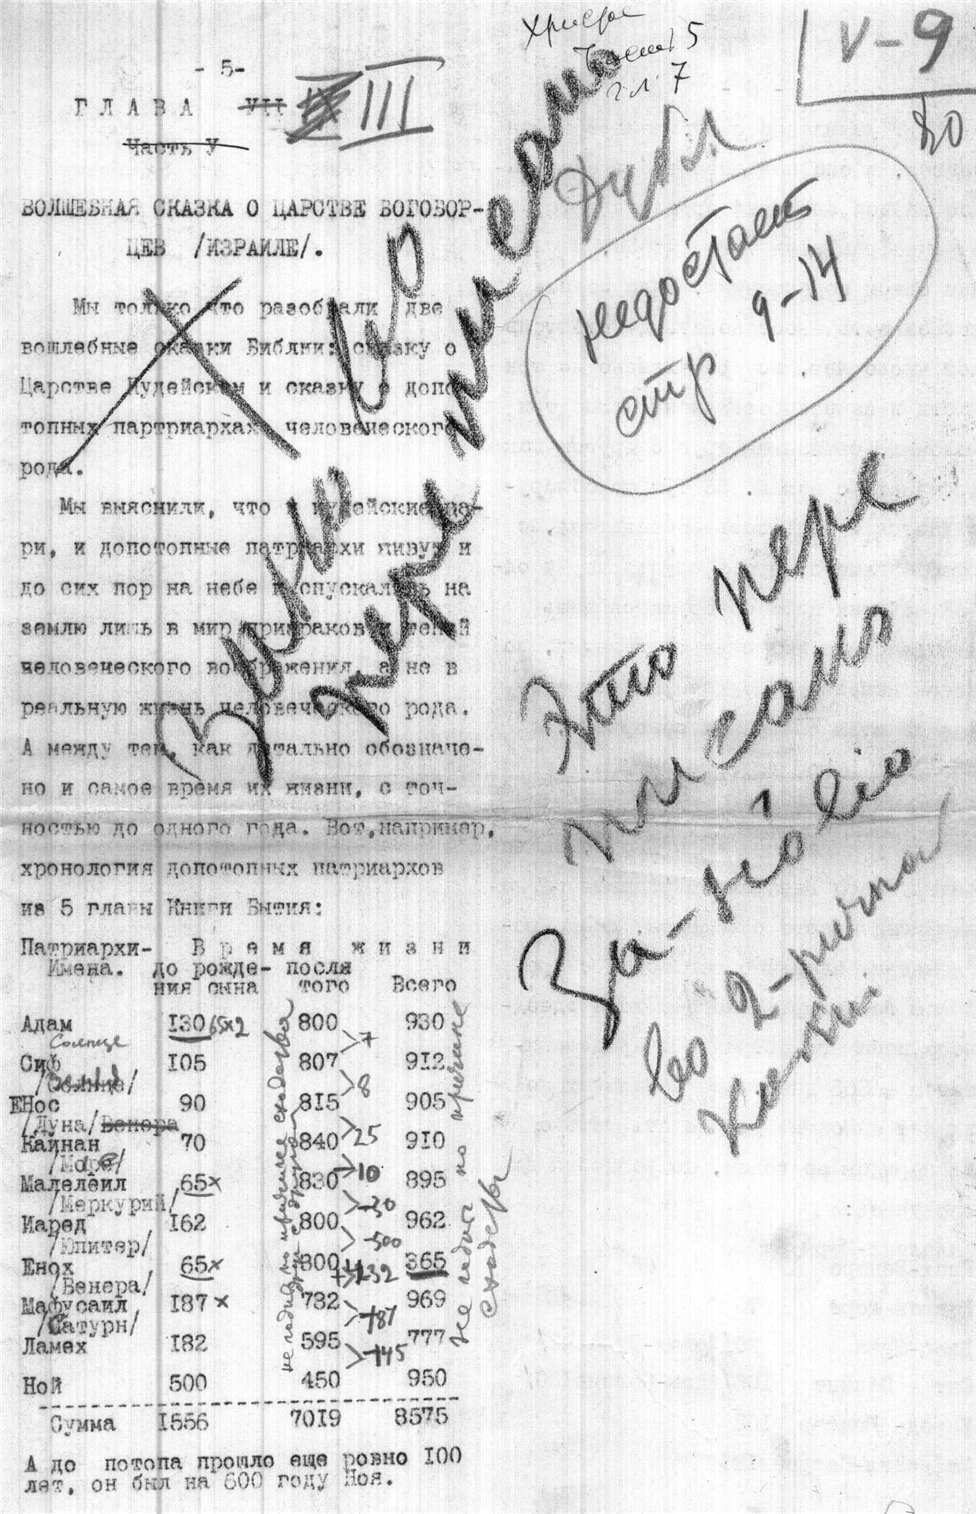 Часть 5
гл 7
V-9
80
- 5-
ГЛАВА VII III
Часть V
Дубл
ВОЛШЕБНАЯ СКАЗКА О ЦАРСТВЕ БОГОБОР-
ЦЕВ /ИЗРАИЛЕ/.
недостает
стр 9-14
Мы только что разобрали две
вошлебные сказки Библии: сказку о
Царстве Иудейском и сказку о допо-
топных партриархах человеческого
рода.
Мы выяснили, что и иудейские ца-
ри, и допотопные патриархи живут и
до сих пор на небе и спускались на
землю лишь в мир призраков и теней
человеческого воображения, а не в
реальную жизнь человеческого рода.
А между тем, как детально обозначе-
но и самое время их жизни, с точ-
ностью до одного года. Вот,например,
хронология допотопных патриархов
из 5 главы Книги Бытия:
Это пере
писано
за-ново
во 2-ричной
Патриархи- Время жизни
Имена. до рожде- после
ния сына того Всего
Адам 130 65x2 800 930
Солнце 7
Сиф 105 807 912
8
ЕНос 90 815 905
/Луна/ Венера 25
Кайнан 70 840 910
/Марс/ 10
Малелеил 65x 830 895
/Меркурий/ -30
Иаред 162 800 962
/Юпитер/ -500
Енох 65x 300 365
/Венера/
Мафусаил 187 x 782 969
/Сатурн/ -187
Ламех 182 595 777
-145
Ной 500 450 950
Сумма 1556 7019 8575
не годы по причине
А до потопа прошло еще ровно 100
лет, он был на 600 году Ноя.